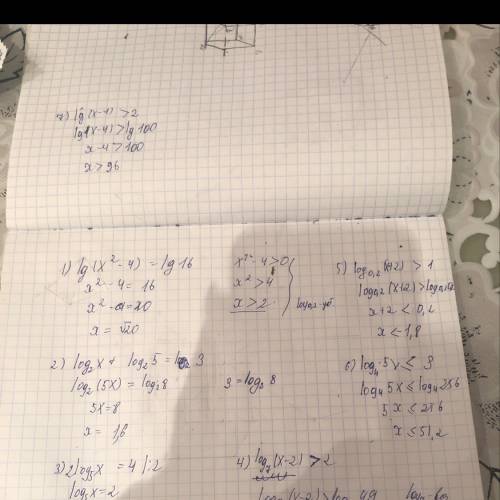 7) lg(x-4) > 2
lg(x-4) > lg 100
x-4 > 100
x > 96
1) lg(x²-4) = lg 16
x²-4 = 16
x² = 20
x = √20
x²-4 > 0
x² > 4
x > 2
5) log₀,₂(x+2) > 1
log₀,₂(x+2) > log₀,₂
x+2 < 0,2
x < -1,8
2) log₂x + log₂5 = 3
log₂(5x) = log₂8
5x = 8
x = 1,6
3 = log₂ 8
6) log₄ 5x ≤ 3
log₄ 5x ≤ log₄ 256
5x ≤ 256
x ≤ 51,2
3) 2log₅x = 4 |:2
log₅x = 2
4) log₇(x-2) > 2
log₇(x-2) > log₇ 49